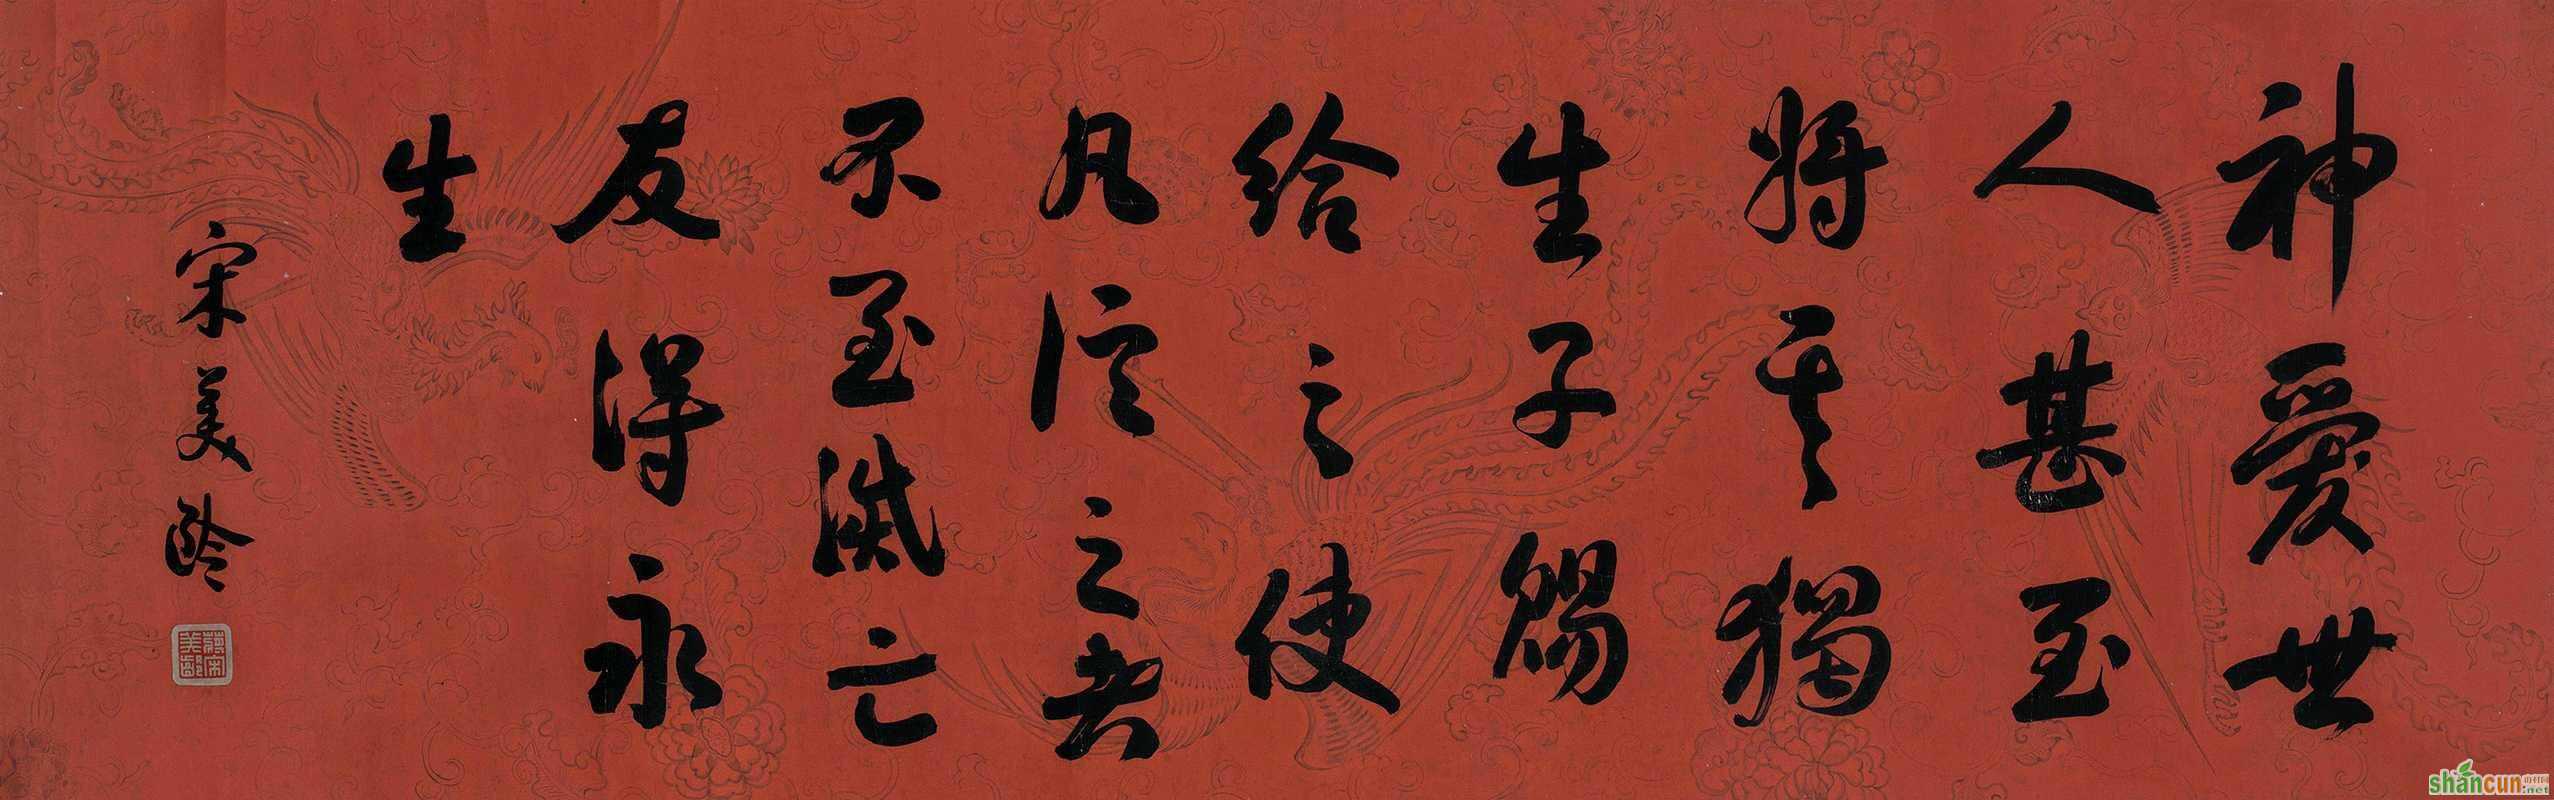 神愛世
人甚至
將其獨
生子賜
給之使
凡信之者
不至滅亡
友得永
生
宋美齡
蔣宋美齡
shancun
.net